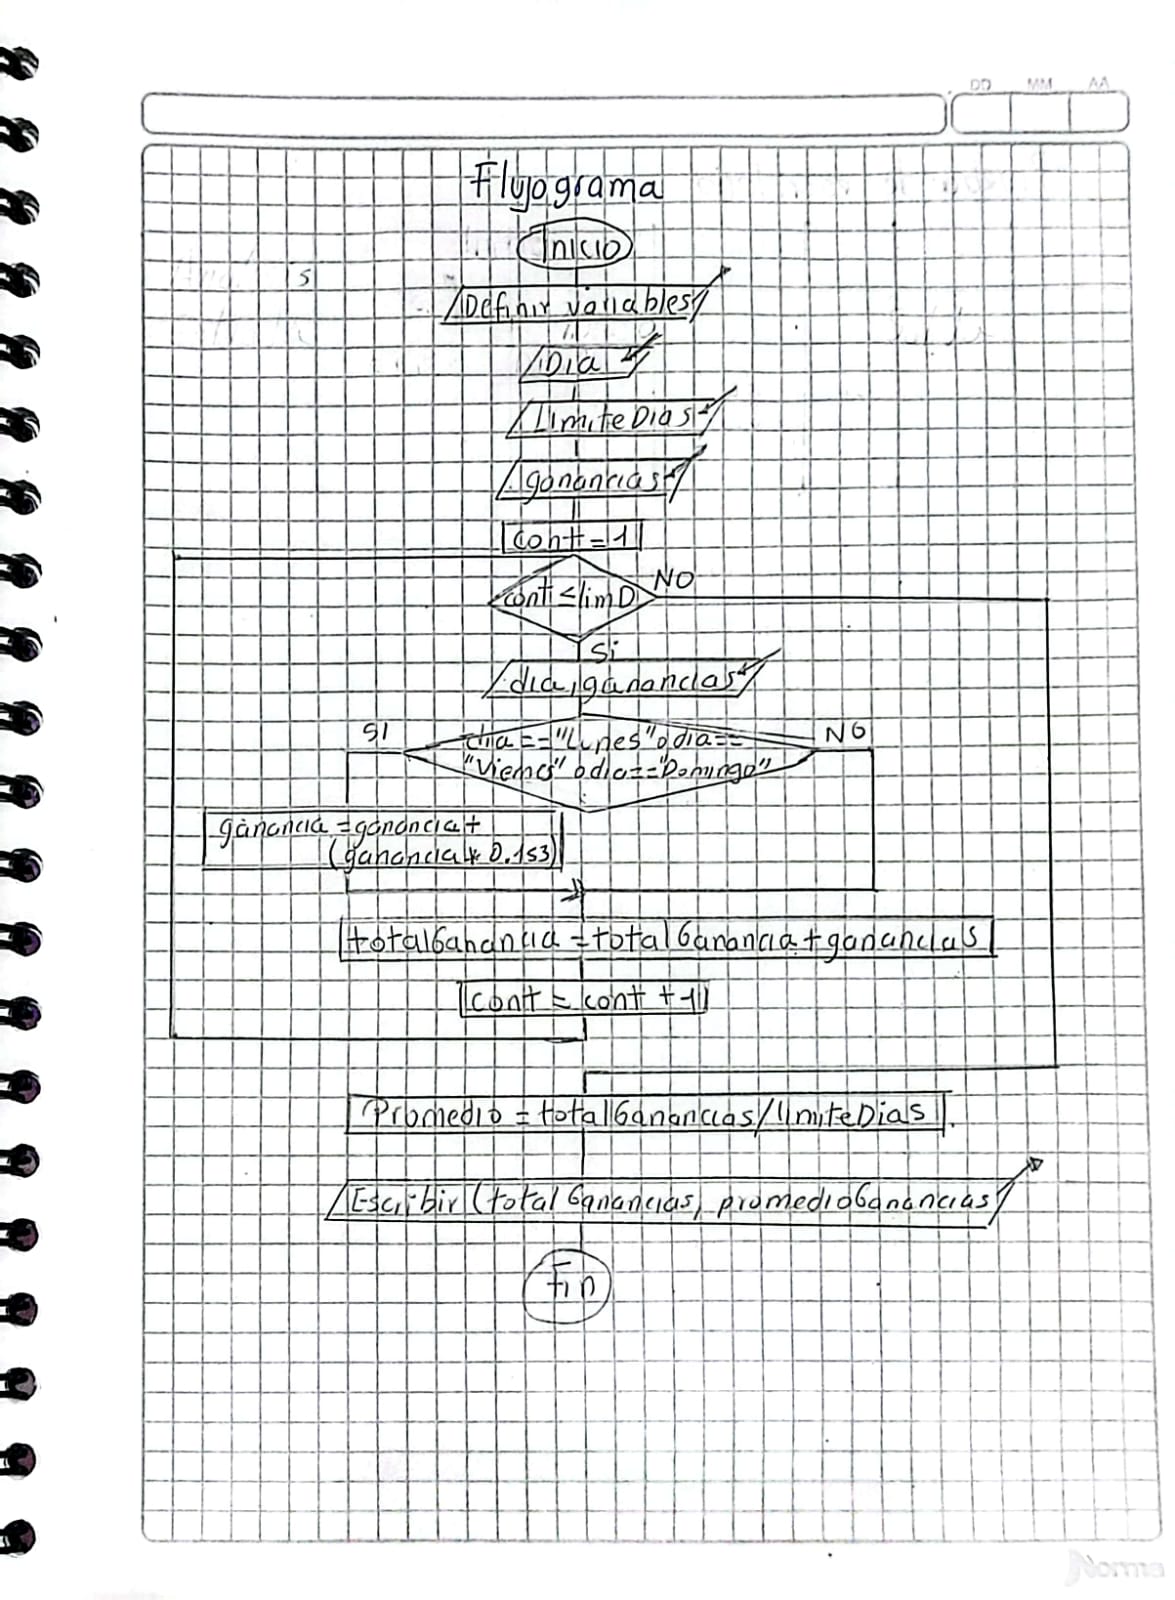 DD MM AA
Flujograma
Inicio
s
Definir variables
Dia
LimiteDias
ganancias
cont = 1
cont ≤ limD
NO
Si
dia, ganancias
SI
dia == "Lunes" o dia ==
NO
"Viernes" o dia == "Domingo"
ganancia = ganancia +
(ganancia * 0.153)
totalGanancia = totalGanancia + ganancias
cont = cont + 1
Promedio = totalGanancias/limiteDias.
Escribir (totalGanancias, promedioGanancias
Fin
Norma